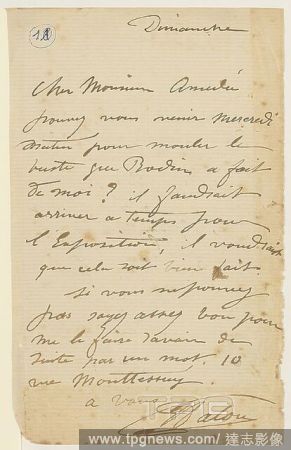 11
Dimanche
Cher Monsieur Amédé
pouvez vous venir Mercredi
matin pour mouler le
buste que Rodin a fait
de moi? il faudrait
arriver a temps pour
l'Exposition, il voudrait
que cela soit bien fait
si vous ne pouvez
pas soyez assez bon pour
me le faire savoir de
suite par un mot. 10
rue Monttessuy
a vous
www.tpgnews.com / 達志影像